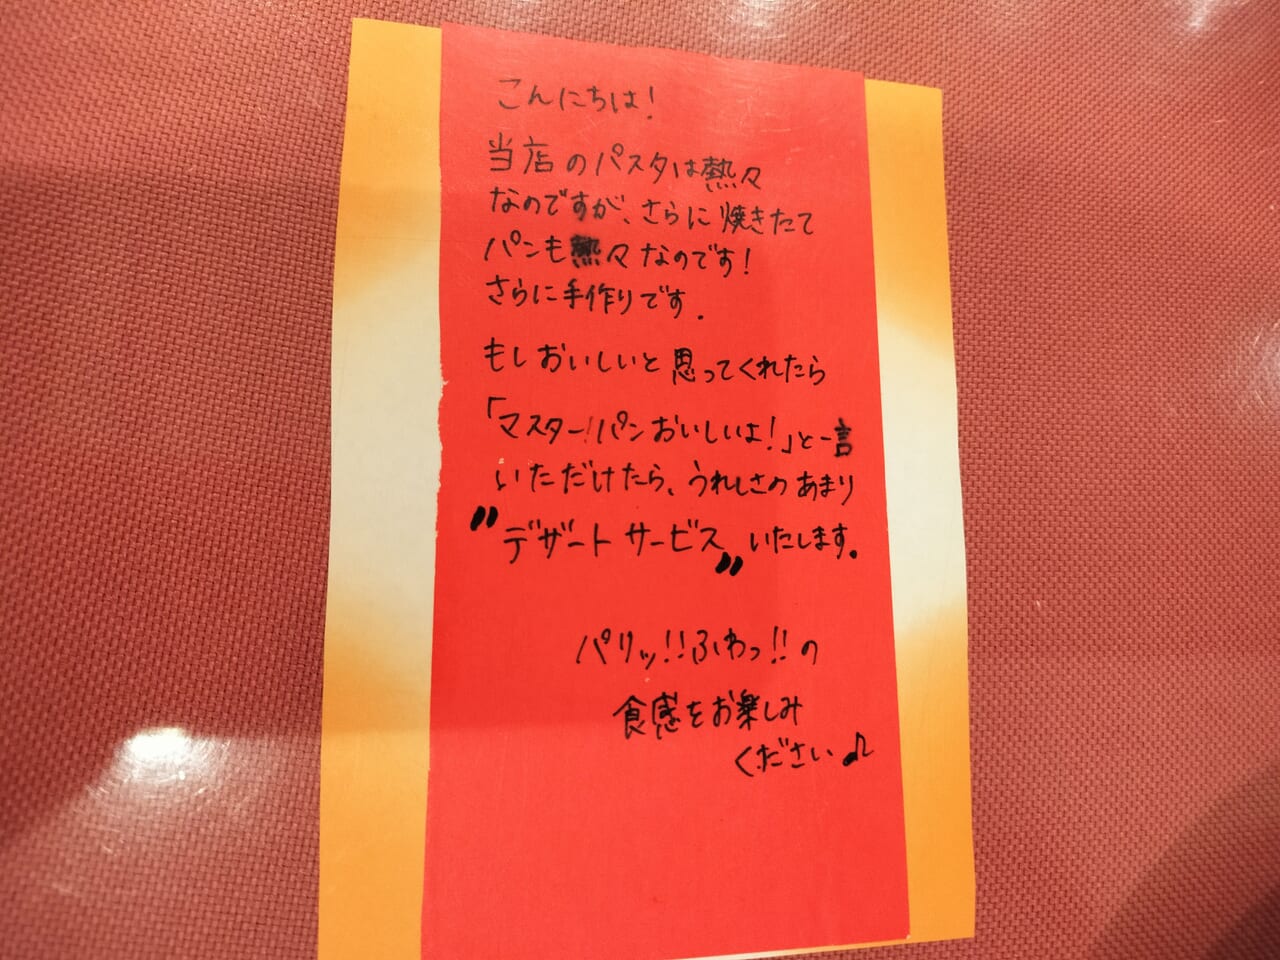 こんにちは!
当店のパスタは熱々
なのですが、さらに焼きたて
パンも熱々なのです!
さらに手作りです.
もしおいしいと思ってくれたら
「マスター!パンおいしいよ!」と一言
いただけたら、うれしさのあまり
〃デザートサービス〃いたします.
パリッ!!ふわっ!!の
食感をお楽しみ
ください♪